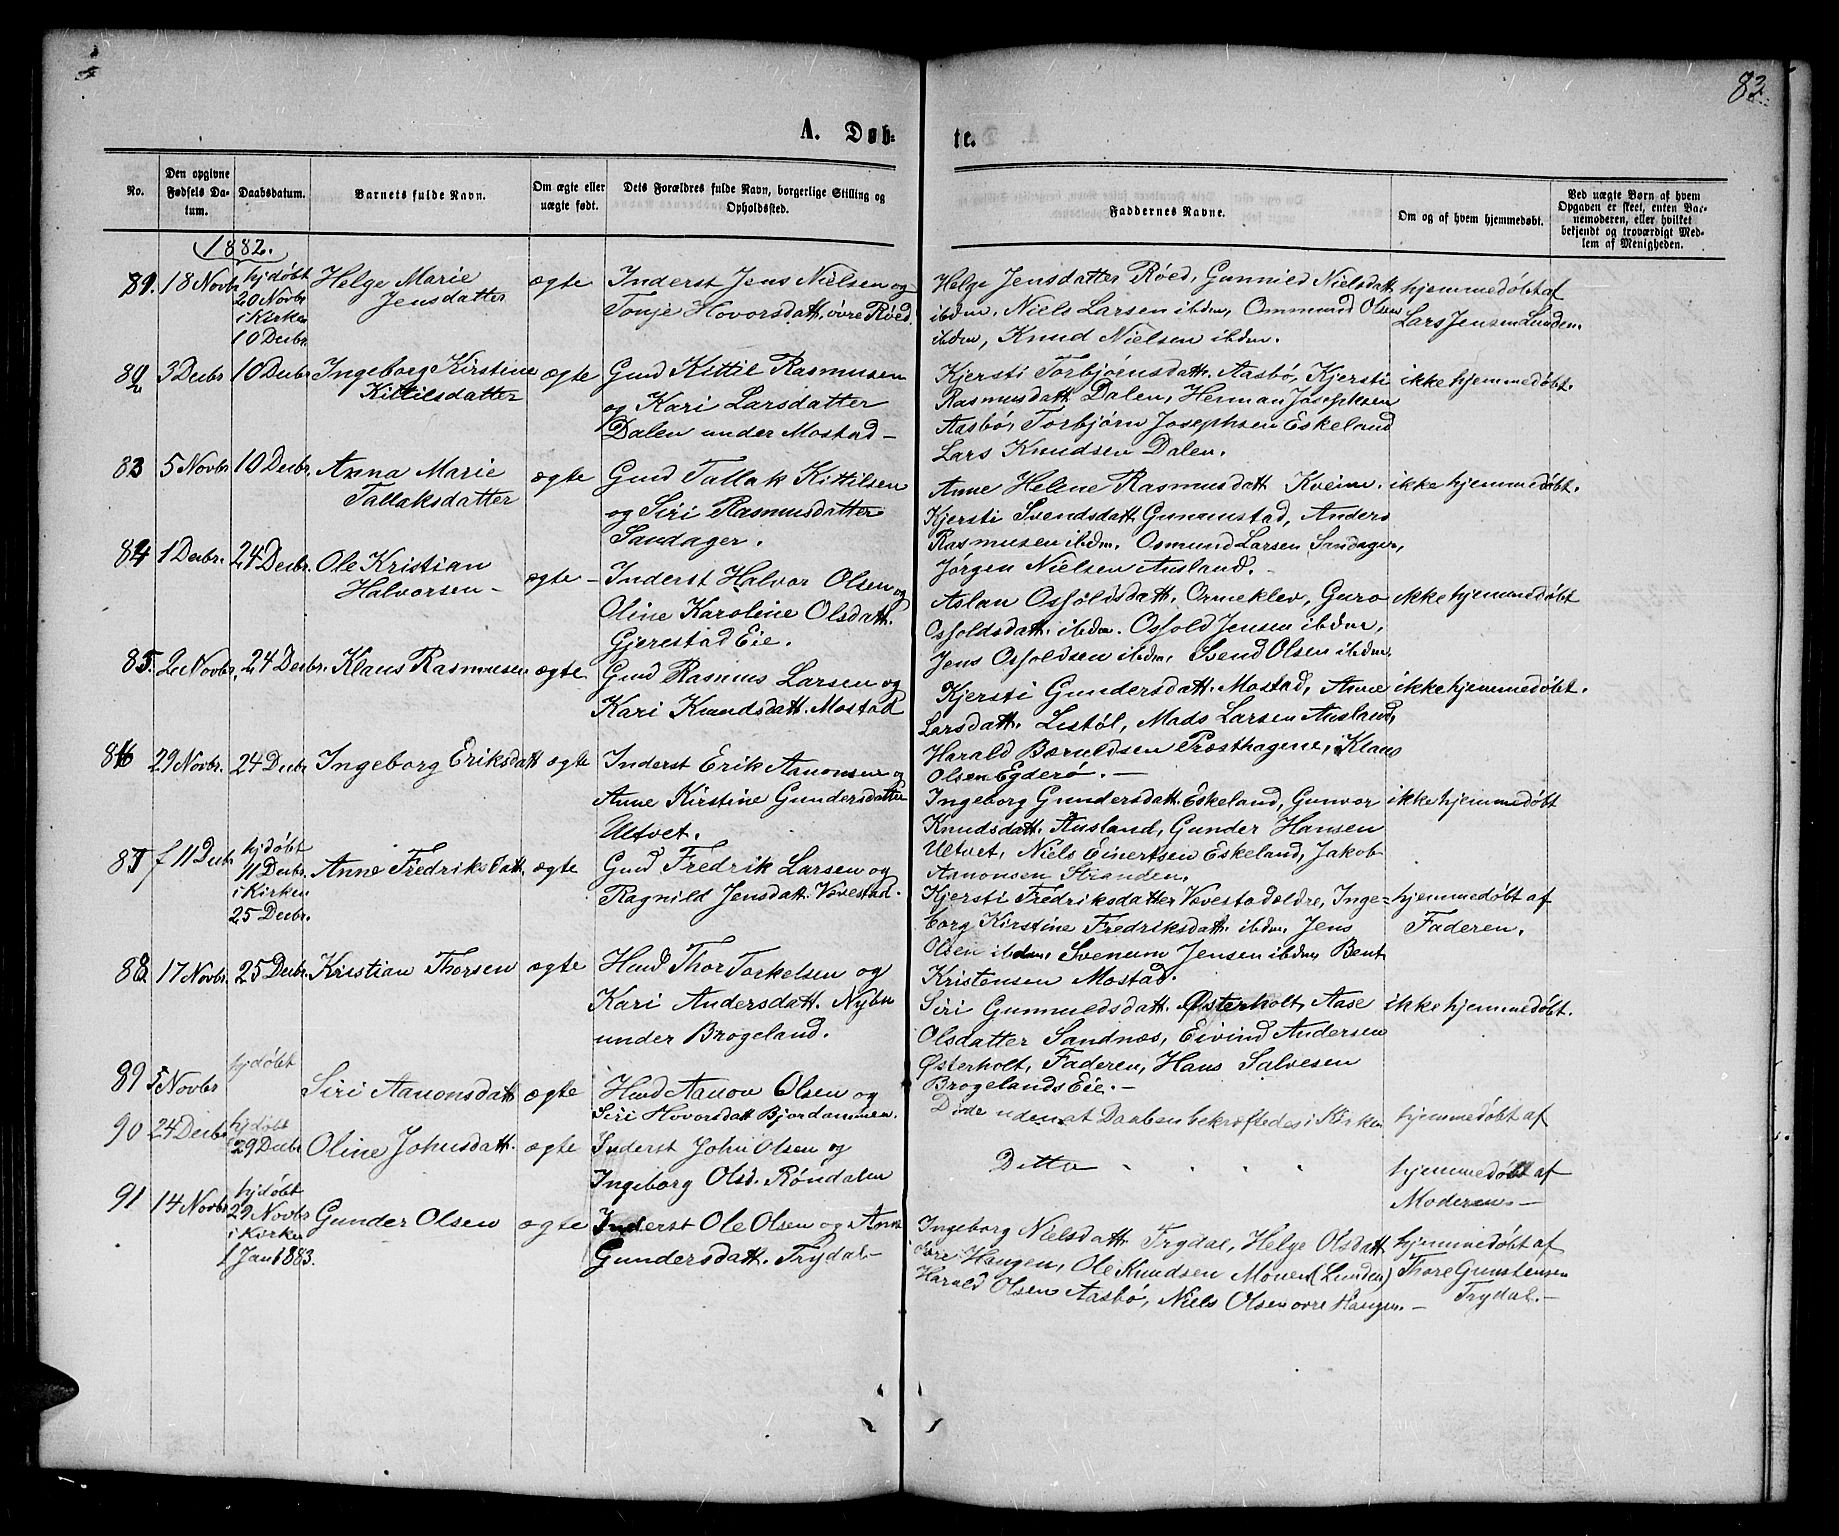 83.
A. Døb-
te.
No.
Den opgivne Fødsels Da-tum.
Daabsdatum.
Barnets fulde Navn.
Om ægte eller uægte født.
Dets Forældres fulde Navn, borgerlige Stilling og Opholdssted.
Faddernes Navne.
Om og af hvem hjemmedøbt.
Ved uægte Børn af hvem Opgaven er skeet, enten Bar-nemoderen, eller hvilket bekjendt og troværdigt Med-lem af Menigheden.
1882.
81. 18 Novbr
hjdøbt
20 Novbr
i Kirken
10 Decbr.
Helge Marie
Jensdatter
ægte
Inderst Jens Nielsen og
Tonje Hovorsdatt. øvre Røed.
Helge Jensdatter Røed, Gunnild Nielsdatt
ibdm, Niels Larsen ibdm, Ommund Olsen
ibdm, Knud Nielsen ibdm.
hjemmedøbt af
Lars Jensen Lunden.
82 3 Decbr 10 Decbr
Ingeborg Kirstine
Kittilsdatter
ægte
Gmd Kittil Rasmusen
og Kari Larsdatter
Dalen under Mostad-
Kjersti Torbjørnsdatt. Aasbø, Kjersti
Rasmusdatt Dalen, Herman Josephsen
Aasbø, Torbjørn Josephsen Eskeland
Lars Knudsen Dalen.
ikke hjemmedøbt.
83 5 Novbr. 10 Decbr.
Anna Marie
Tallaksdatter
ægte
Gmd Tallak Kittilsen
og Siri Rasmusdatter
Sandager.
Anne Helene Rasmusdatt Kveim.
Kjersti Svendsdatt. Gunnmstad, Anders
Rasmusen ibdm. Osmund Larsen Sandager,
Jørgen Nielsen Ausland.
ikke hjemmedøbt.
84 1 Decbr. 24 Decbr.
Ole Kristian
Halvorsen-
ægte-
Inderst Halvor Olsen og
Oline Karoline Olsdatt.
Gjerestad Eie.
Aslau Osfoldsdatt. Ormeklev, Guro
Osfoldsdatt. ibdm. Osfold Jensen ibdm,
Jens Osfoldsen ibdm, Svend Olsen ibdm.
ikke hjemmedøbt
85. 2 Novbr. 24 Decbr.
Klaus Rasmusen
ægte
Gmd Rasmus Larsen og
Kari Knudsdatt. Mostad
Kjersti Gundersdatt. Mostad, Anne
Larsdatt. Lestøl, Mads Larsen Ausland,
Harald Børuldsen Prosthagene, Klaus
Olsen Egderø.-
ikke hjemmedøbt.
86 29 Novbr. 24 Decbr
Ingeborg Eriksdatt
ægte
Inderst Erik Aanonsen og
Anne Kirstine Gundersdatter
Ultvet.
Ingeborg Gundersdatt. Eskeland, Gunvor
Knudsdatt. Ausland, Gunder Hansen
Ultvet, Niels Einertsen Eskeland, Jakob
Aanonsen Stranden.
ikke hjemmedøbt
87 f 11 Decbr
hjdøbt
11 Decbr.
i Kirken
25 Decbr.
Anne Fredriksdatt.
ægte
Gmd Fredrik Larsen og
Ragnild Jensdatt. Vovestad.
Kjersti Fredriksdatter Vovestad ældre, Inge-
borg Kirstine Fredriksdatt. ibdm, Jens
Olsen ibdm, Svenum Jensen ibdm, Bent
Kristensen Mostad.
hjemmedøbt af
Faderen.
88. 17 Novbr. 25 Decbr.
Kristian Thorsen
ægte
Hmd Thor Torkelsen og
Kari Andersdatt. Nybu
under Brogeland.
Siri Gunnuldsdatt. Østerholt, Aase
Olsdatter Sandnæs, Eivind Andersen
Østerholt, Faderen, Hans Salvesen
Brogelands Eie.-
ikke hjemmedøbt.
89 5 Novbr
hjdøbt
Siri Aanonsdatt
ægte
Hmd Aanon Olsen og
Siri Hovorsdatt Bjordammen.
Døde uden at Daaben bekræftedes i Kirken
hjemmedøbt af
90 24 Decbr
hjdøbt
29 Decbr
Oline Johnsdatt.
ægte
Inderst John Olsen og
Ingeborg Olsd. Røndalen
Ditto " " " "
hjemmedøbt af
Moderen.-
91 14 Novbr
hjdøbt
29 Novbr
i Kirken
1 Jan 1883.
Gunder Olsen
ægte
Inderst Ole Olsen og Anne
Gundersdatt. Trydal-
Ingeborg Nielsdatt. Trydal, Helge Olsdatt
øvre Haugen, Ole Knudsen Monen (Lunden)
Harald Olsen Aasbø, Niels Olsen øvre Haugen.-
hjemmedøbt af
Thore Gunstensen
Trydal.-